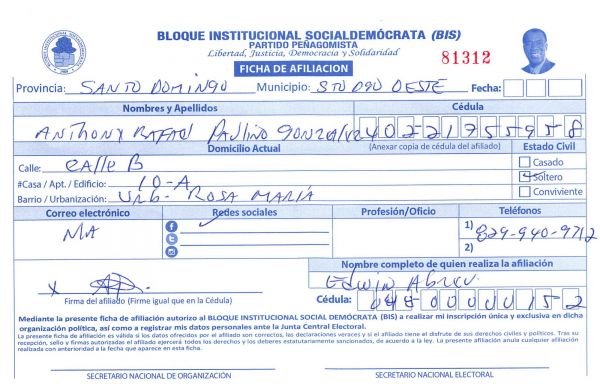 BLOQUE INSTITUCIONAL SOCIALDEMÓCRATA (BIS)
PARTIDO PEÑAGOMISTA
Libertad, Justicia, Democracia y Solidaridad
FICHA DE AFILIACION
81312
Provincia: SANTO DOMINGO Municipio: STO DGO OESTE Fecha:
Nombres y Apellidos Cédula
ANTHONY RAFAEL PAULINO GONZALEZ 40221755958
Domicilio Actual (Anexar copia de cédula del afiliado) Estado Civil
Calle: CALLE B Casado
#Casa / Apt. / Edificio: 10-A Soltero
Barrio / Urbanización: URB. ROSA MARÍA Conviviente
Correo electrónico Redes sociales Profesión/Oficio Teléfonos
NA 1) 829-940-9712
2)
Nombre completo de quien realiza la afiliación
X Edwin Abreu
Firma del afiliado (Firme igual que en la Cédula) Cédula: 04800000152
Mediante la presente ficha de afiliación autorizo al BLOQUE INSTITUCIONAL SOCIAL DEMÓCRATA (BIS) a realizar mi inscripción única y exclusiva en dicha
organización política, así como a registrar mis datos personales ante la Junta Central Electoral.
La presente ficha de afiliación es válida si los datos ofrecidos por el afiliado son correctos, las declaraciones veraces y si el afiliado tiene el disfrute de sus derechos civiles y políticos. Tras su
recepción, sello y firmas autorizadas el afiliado ejercerá todos los derechos y los deberes estatutariamente sancionados, de acuerdo a la ley. La presente afiliación anula cualquier afiliación
realizada con anterioridad a la fecha que aparece en esta ficha.
SECRETARIO NACIONAL DE ORGANIZACIÓN SECRETARIO NACIONAL ELECTORAL